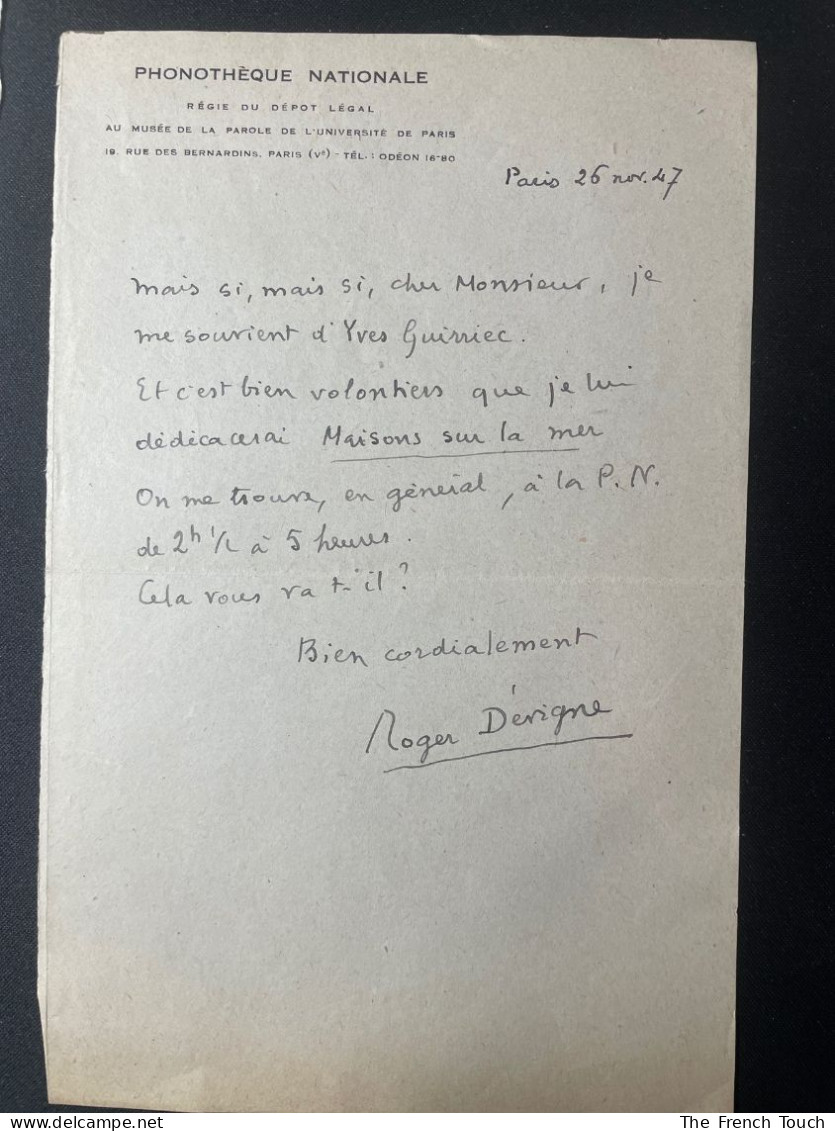 PHONOTHÈQUE NATIONALE
RÉGIE DU DÉPOT LÉGAL
AU MUSÉE DE LA PAROLE DE L'UNIVERSITÉ DE PARIS
19, RUE DES BERNARDINS, PARIS (Vᵉ) - TÉL. : ODÉON 16-80
Paris 26 nov. 47
Mais si, mais si, cher Monsieur, je
me souvient d'Yves Guirriec.
Et c'est bien volontiers que je lui
dédicacerai Maisons sur la mer
On me trouve, en général, à la P.N.
de 2h 1/2 à 5 heures.
Cela vous va t-il ?
Bien cordialement
Roger Dévigne
The French Touch